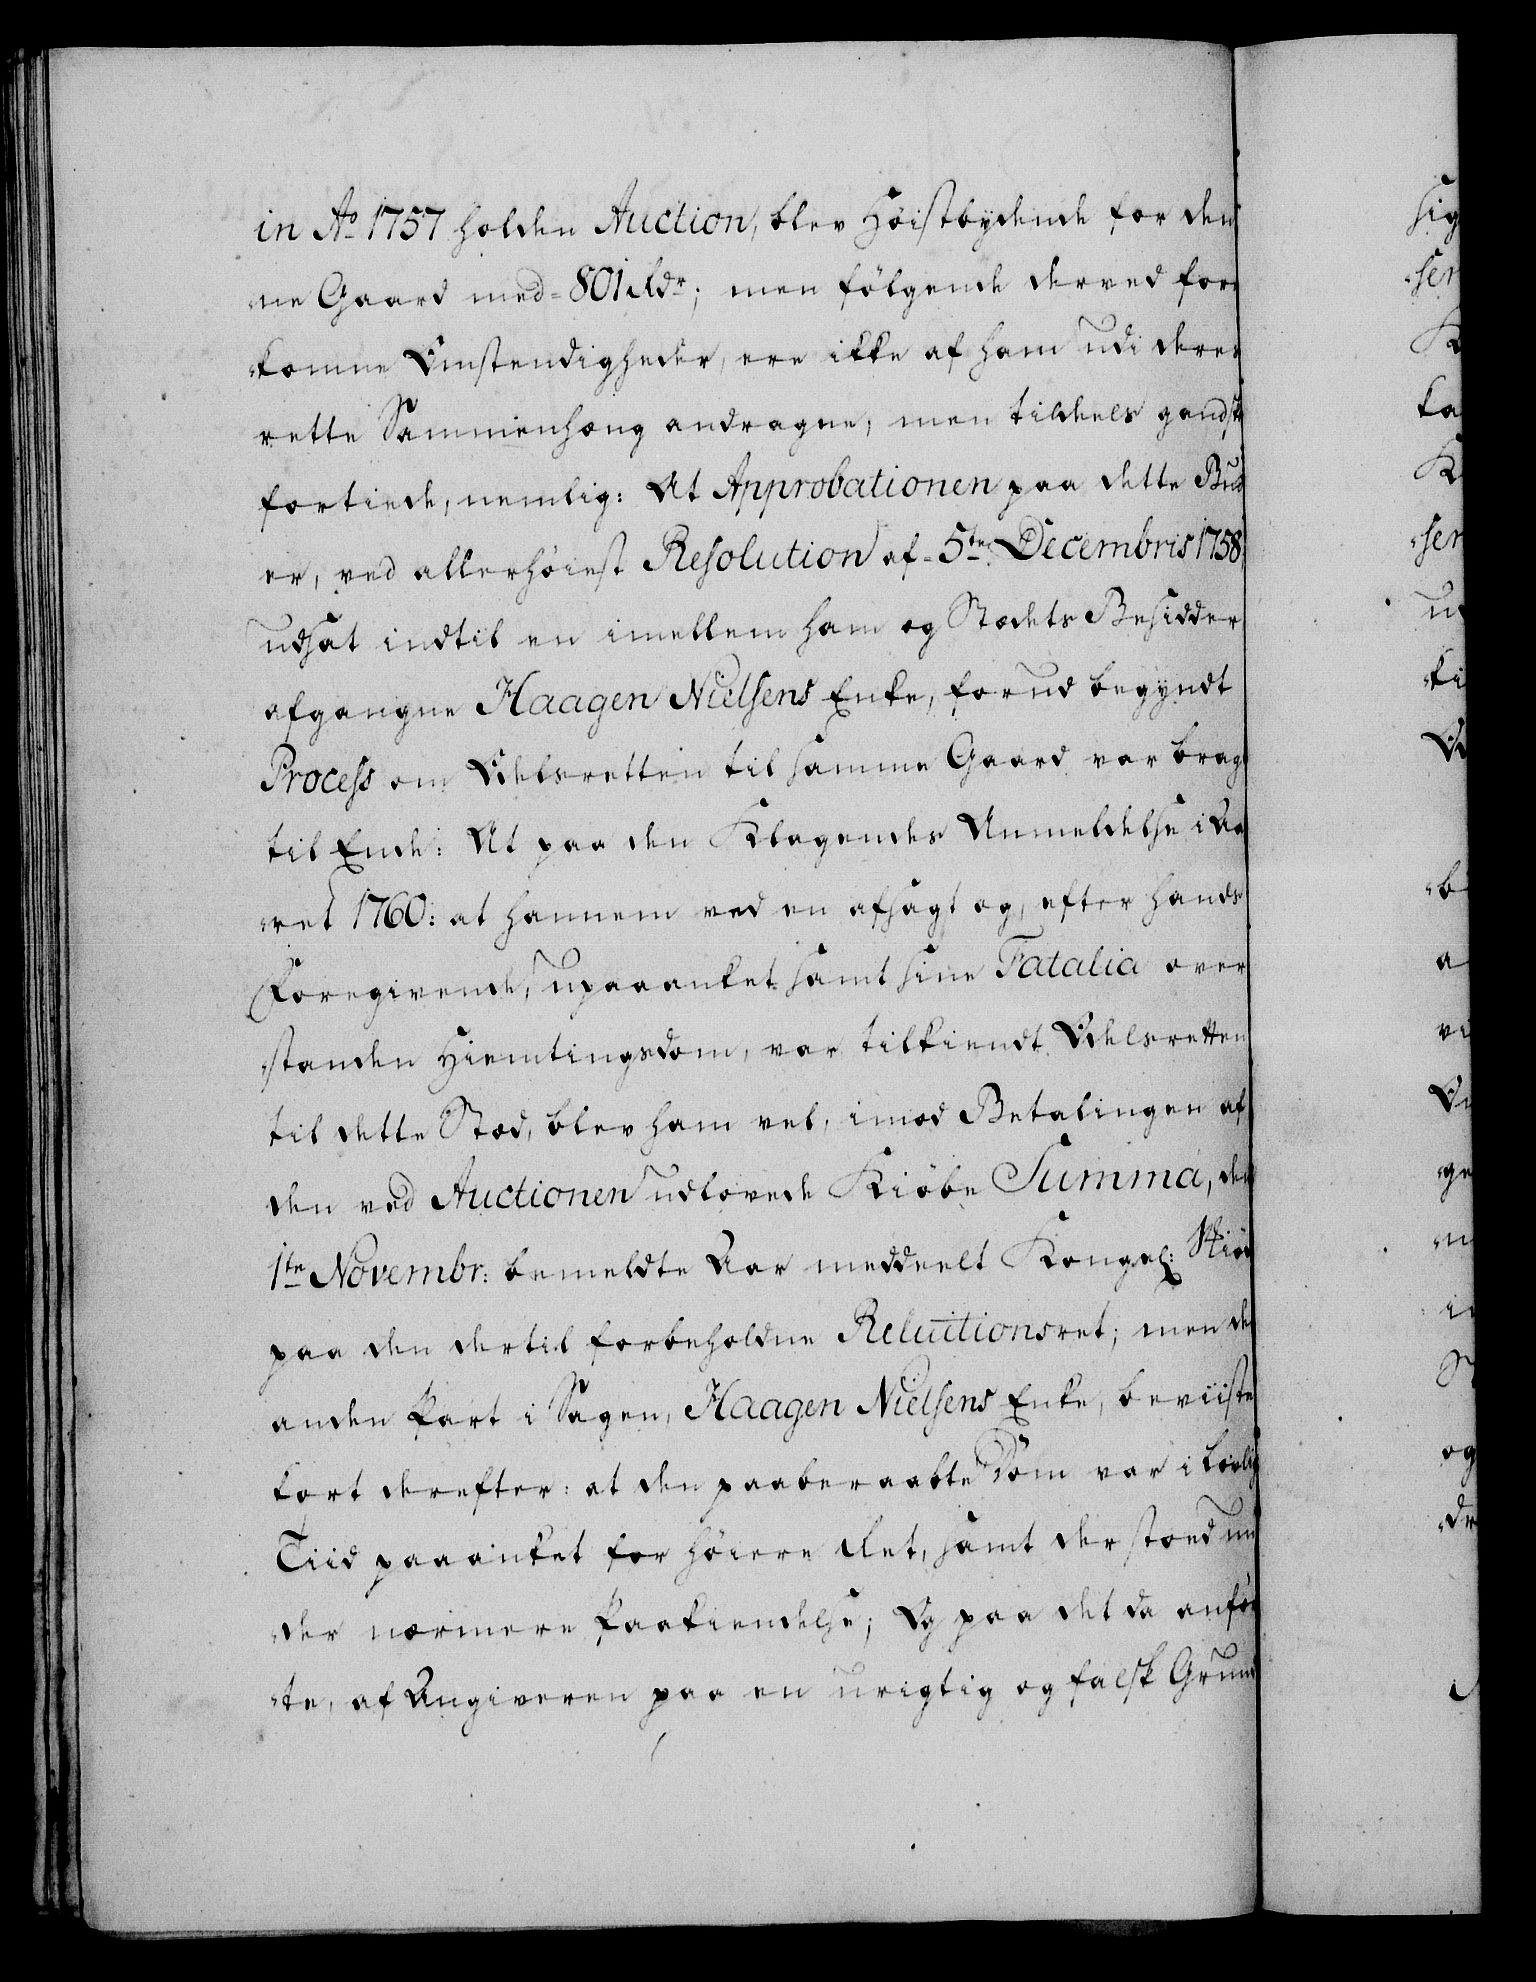 in Aº 1757 holden Auction, blev Høistbydende for den
ne Gaard med 801 Rdr; men følgende derved fore
komne Omstendigheder, ere ikke af ham udi deres
rette Sammenhæng andragne, men tildeels gandske
fortiede, nemlig: At Approbationen paa dette Bud
er, ved allerhøiest Resolution af 5te Decembris 1758,
udsat indtil en imellem ham og Stædets Besidder
afgangne Haagen Nielsens Enke, forud begyndt
Process om Odelsretten til samme Gaard var bragt
til Ende: At paa den Klagendes Anmeldelse i Aa
ret 1760: at hannem ved en afsagt og, efter hands
Foregivende, upaaanket samt sine Fatalia over
standen Hiemtingsdom, var tilkiendt Odelsretten
til dette Stæd, blev ham vel, imod Betalingen af
den ved Auctionen udlovede Kiøbe Summa, den
1te Novembr: bemeldte Aar meddeelt Kongel: Skiøde
paa den dertil forbeholdne Reluitionsret; men den
anden Part i Sagen, Haagen Nielsens Enke, beviiste
kort derefter: at den paaberaabte Dom var i lovlig
Tiid paaanket for høiere Ret, samt der stoed un
der nærmere Paakiendelse; Og paa det da anfør
te, af Angiveren paa en urigtig og falsk Grund